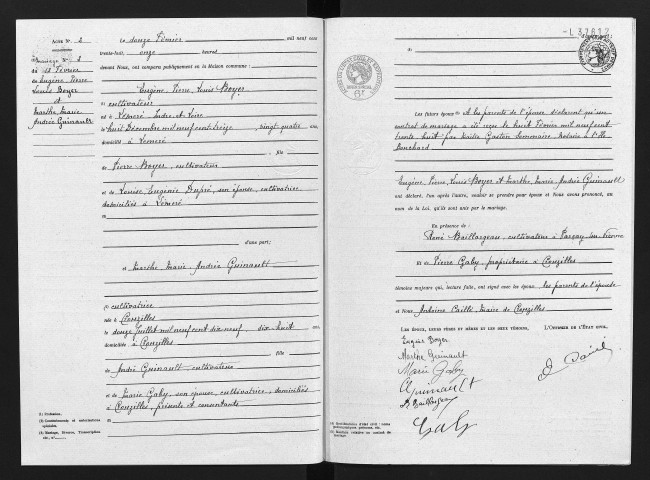 Acte N° 2
(3) Mariage N° 2
du 12 Février
de Eugène Pierre
Louis Boyer
et
Marthe Marie
Andrée Guinault
Le douze Février mil neuf cent
trente-huit, onze heures
devant Nous, ont comparu publiquement en la Maison commune :
Eugène, Pierre, Louis Boyer
(1) cultivateur
né à Lémeré Indre-et-Loire
le huit Décembre mil neuf cent treize, vingt quatre ans,
domicilié à Lémeré
fils
de Pierre Boyer, cultivateur
et de Louise, Eugénie Dupré, son épouse, cultivatrice
domiciliés à Lémeré
(2)
d'une part;
et Marthe, Marie, Andrée Guinault
(1) cultivatrice
née à Couziers
le douze Juillet mil neuf cent dix neuf, dix huit ans,
domiciliée à
fille
de André Guinault, cultivateur
et de Marie Gaby, son épouse, cultivatrice, domiciliés
à présents et consentants
(2)
(1) Profession.
(2) Consentements et autorisations
spéciales.
(3) Mariage, Divorce, Transcription.
etc., n°
d'autre part;
(4)
Les futurs époux (5) et les parents de l'épouse déclarent qu'un
contrat de mariage a été reçu le huit Février mil neuf cent
trente huit par Maître Gaston notaire à l'Ile
Bouchard
Eugène, Pierre, Louis Boyer et Marthe, Marie, Andrée Guinault
ont déclaré, l'un après l'autre, vouloir se prendre pour époux et Nous avons prononcé, au
nom de la Loi, qu'ils sont unis par le mariage.
En présence de :
René Baillargeau, cultivateur à Parçay-sur-Vienne
Et de Pierre Gaby, propriétaire à
témoins majeurs qui, lecture faite, ont signé avec les époux les parents de l'épouse
et Nous Antoine Maire de
LES ÉPOUX, LEURS PÈRES ET MÈRES ET LES DEUX TÉMOINS,
L'OFFICIER DE L'ÉTAT CIVIL,
Eugène Boyer
Marthe Guinault
Marie Gaby
A Guinault
R Baillargeau
Gaby